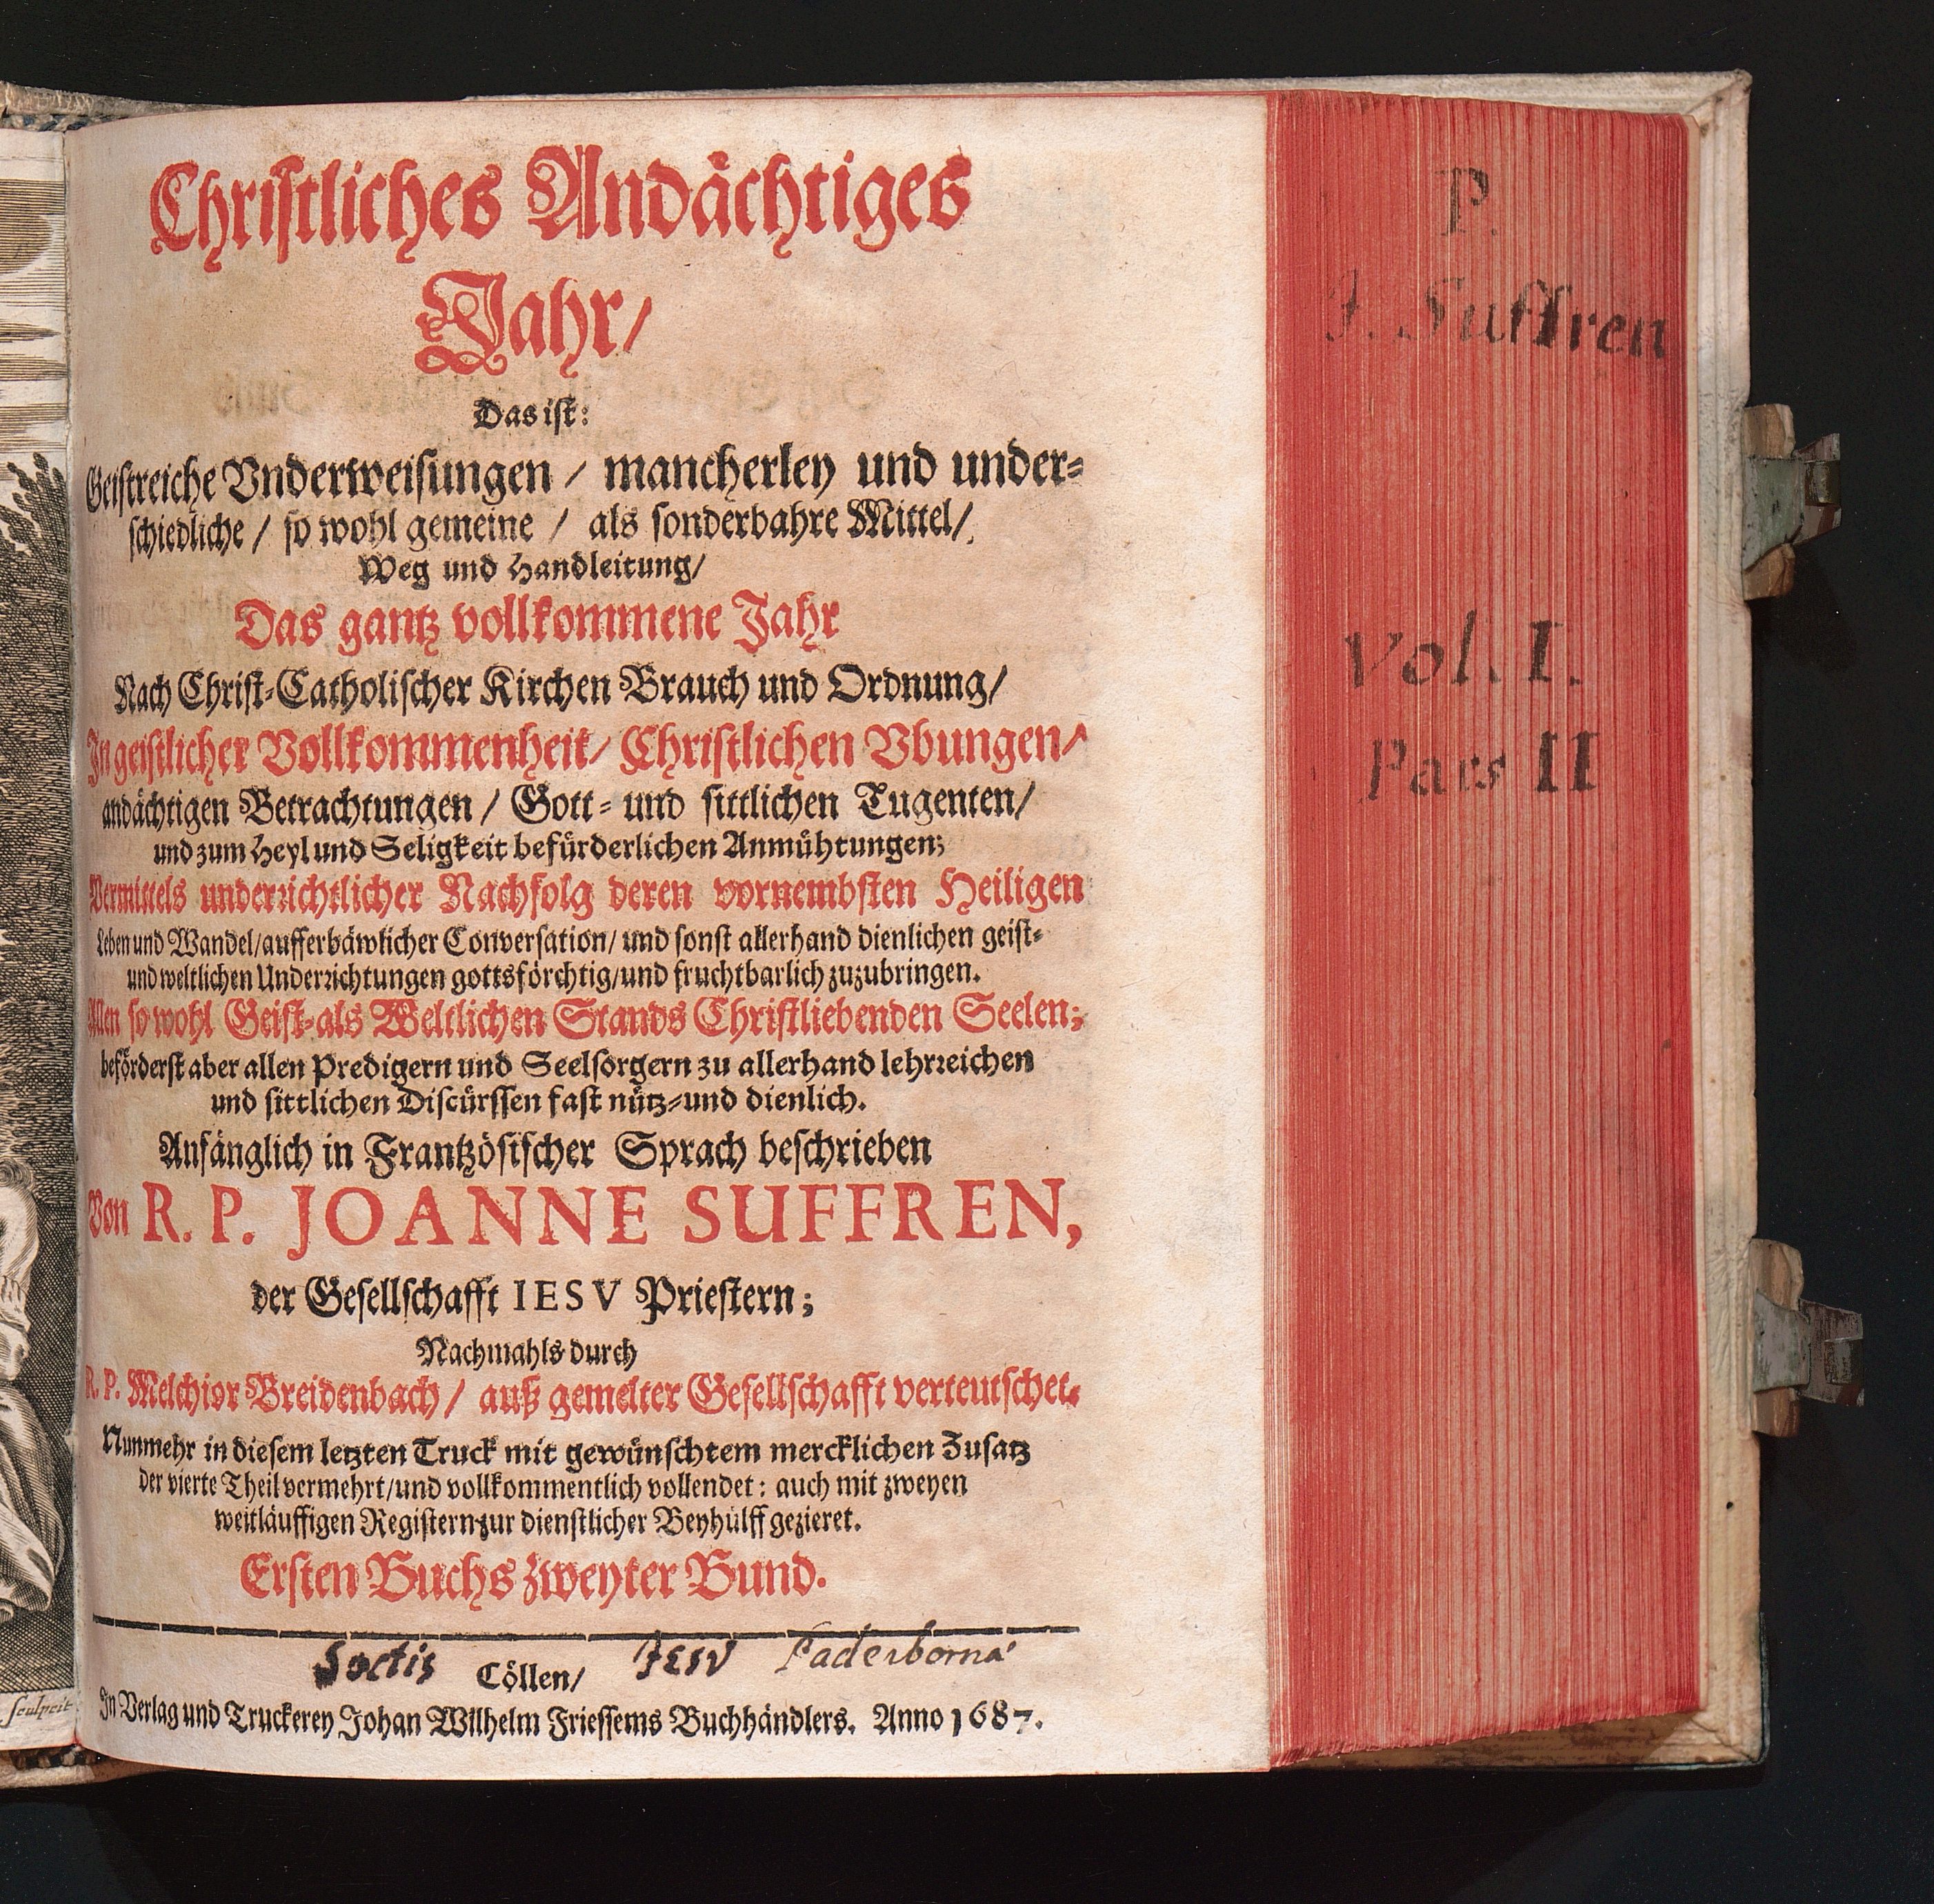 Christliches Andächtiges
Jahr/
Das ist:
Geistreiche Vnderweisungen / mancherley und under-
schiedliche / so wohl gemeine / als sonderbahre Mittel/
Weg und Handleitung/
Das gantz vollkommene Jahr
Nach Christ-Catholischer Kirchen Brauch und Ordnung/
In geistlicher Vollkommenheit/ Christlichen Vbungen/
andächtigen Betrachtungen / Gott- und sittlichen Tugenten/
und zum Heyl und Seligkeit befürderlichen Anmühtungen;
Vermittels underrichtlicher Nachfolg deren vornembsten Heiligen
Leben und Wandel/aufferbäwlicher Conversation/ und sonst allerhand dienlichen geist-
und weltlichen Underrichtungen gottsförchtig/und fruchtbarlich zuzubringen.
Allen so wohl Geist-als Weltlichen Stands Christliebenden Seelen;
beförderst aber allen Predigern und Seelsorgern zu allerhand lehrreichen
und sittlichen Discürssen fast nütz-und dienlich.
Anfänglich in Frantzösischer Sprach beschrieben
Von R. P. JOANNE SUFFREN,
der Gesellschafft IESV Priestern;
Nachmahls durch
R. P. Melchior Breidenbach / auß gemelter Gesellschafft verteutschet.
Nunmehr in diesem letzten Truck mit gewünschtem mercklichen Zusatz
der vierte Theil vermehrt/und vollkommentlich vollendet: auch mit zweyen
weitläuffigen Registern zur dienstlicher Beyhülff gezieret.
Ersten Buchs zweyter Bund.
Soctis JESV Paderbornæ
Cöllen/
In Verlag und Truckerey Johan Wilhelm Friessems Buchhändlers. Anno 1687.
P.
J. Suffren
Vol. I.
Pars II
sculpsit